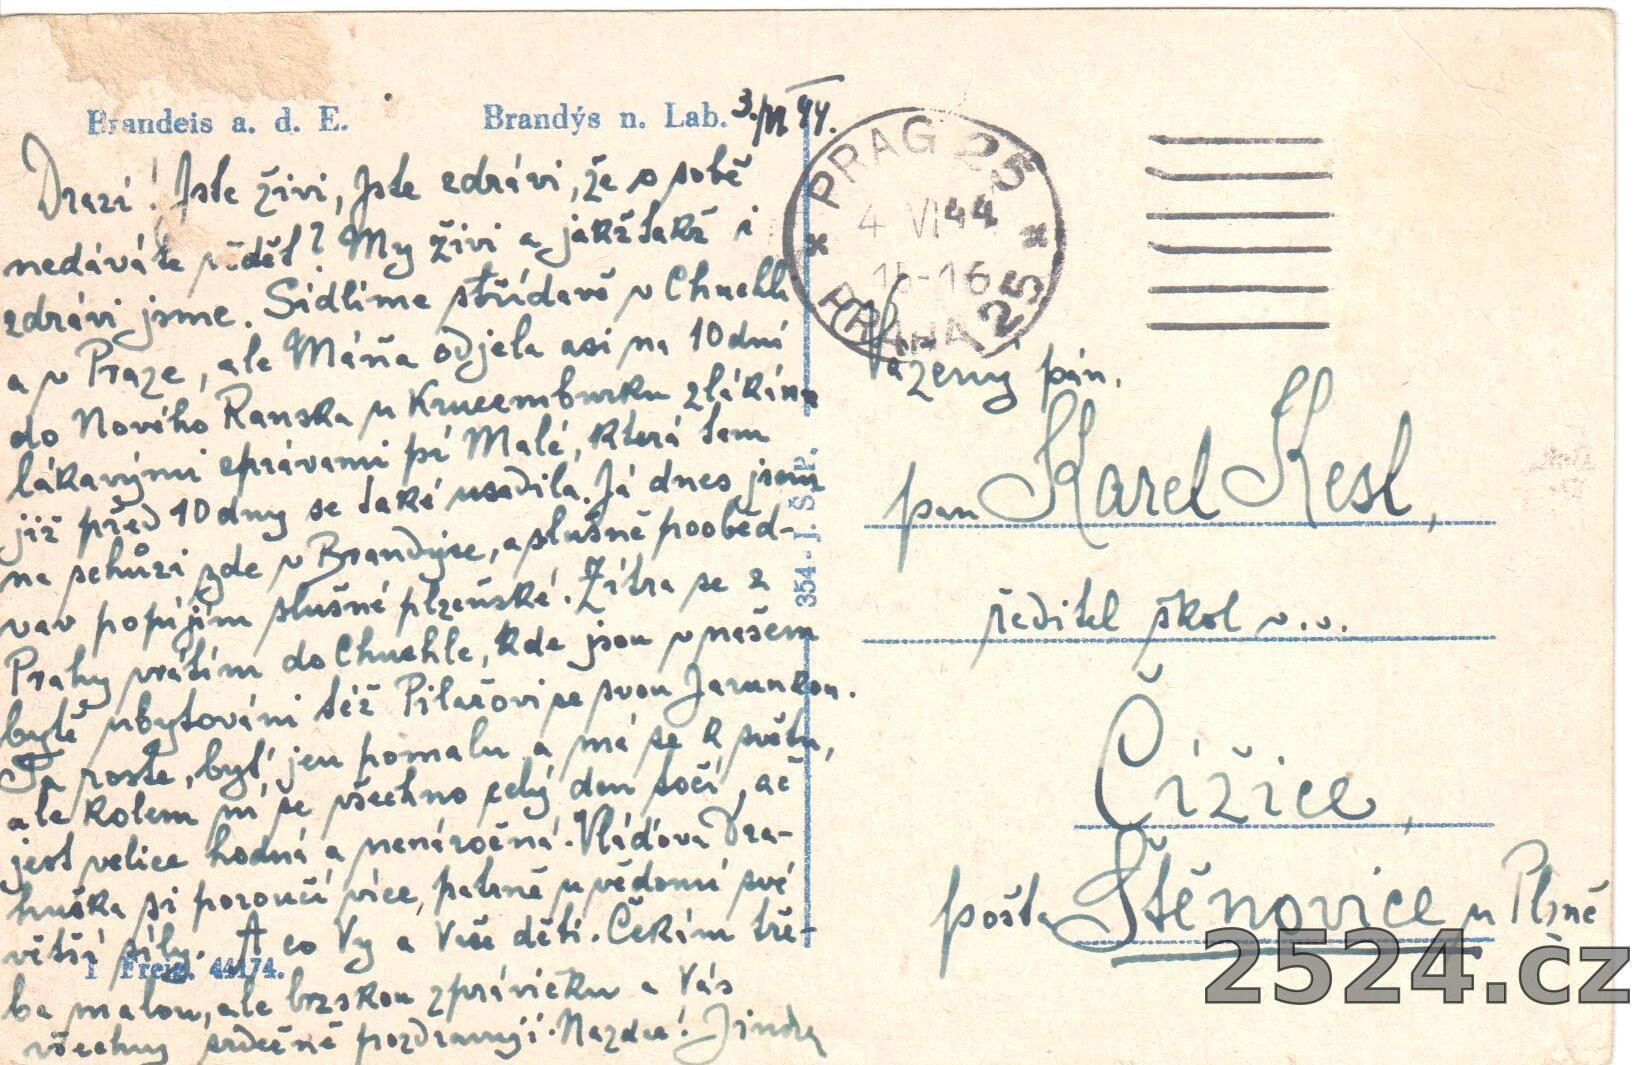 Brandeis a. d. E. Brandýs n. Lab. 3./VI 44.
Drazí! Jste živi, jste zdrávi, že o sobě
nedáváte vědět? My živi a jakžtakž i
zdrávi jsme. Sídlíme střídavě v Chuchli
a v Praze, ale Máňa odjela asi na 10 dní
do Nového Ranska u Krucemburku zlákána
lákavými zprávami pí Malé, která tam
již před 10 dny se také usadila. Já dnes jsem
na schůzi zde v Brandýse, a slušně pooběd-
vav popíjím slušné plzeňské. Zítra se z
Prahy vrátím do Chuchle, kde jsou v našem
bytě ubytováni též Pilařovi se svou Jarunkou.
Ta roste, byť jen pomalu a má se k světu,
ale kolem ní se všechno celý den točí, ač
jest velice hodná a nenáročná. Vláďova Dra-
huška si poroučí více, patrně u vědomí své
větší síly. A co Vy a Vaše děti. Čekám tře-
ba malou, ale brzskou zprávičku a Vás
všechny srdečně pozdravuji. Nazdar! Jindra
1 Freig. 44174.
354 - J. Š. P.
PRAG 25
4 VI 44
15-16
PRAHA 25
Vážený pán,
pan Karel Kesl,
ředitel škol v.v.
Čížice,
pošta Štěnovice u Plzně
2524.cz